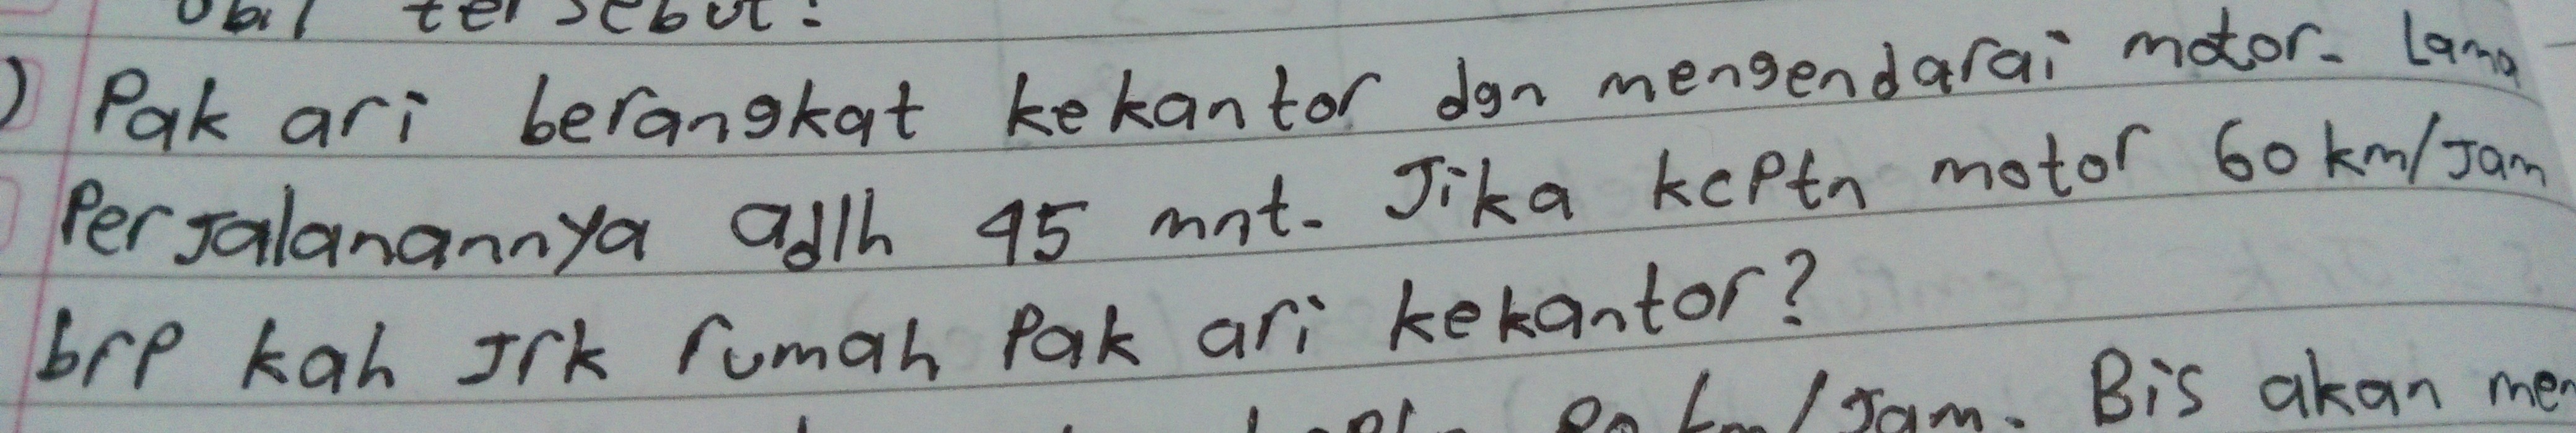 tersebut.
) Pak ari berangkat kekantor dgn mengendarai motor. Lama
Perjalanannya adlh 45 mnt. Jika kcptn motor 60 km/jam
brp kah jrk rumah Pak ari kekantor?
km/jam. Bis akan men